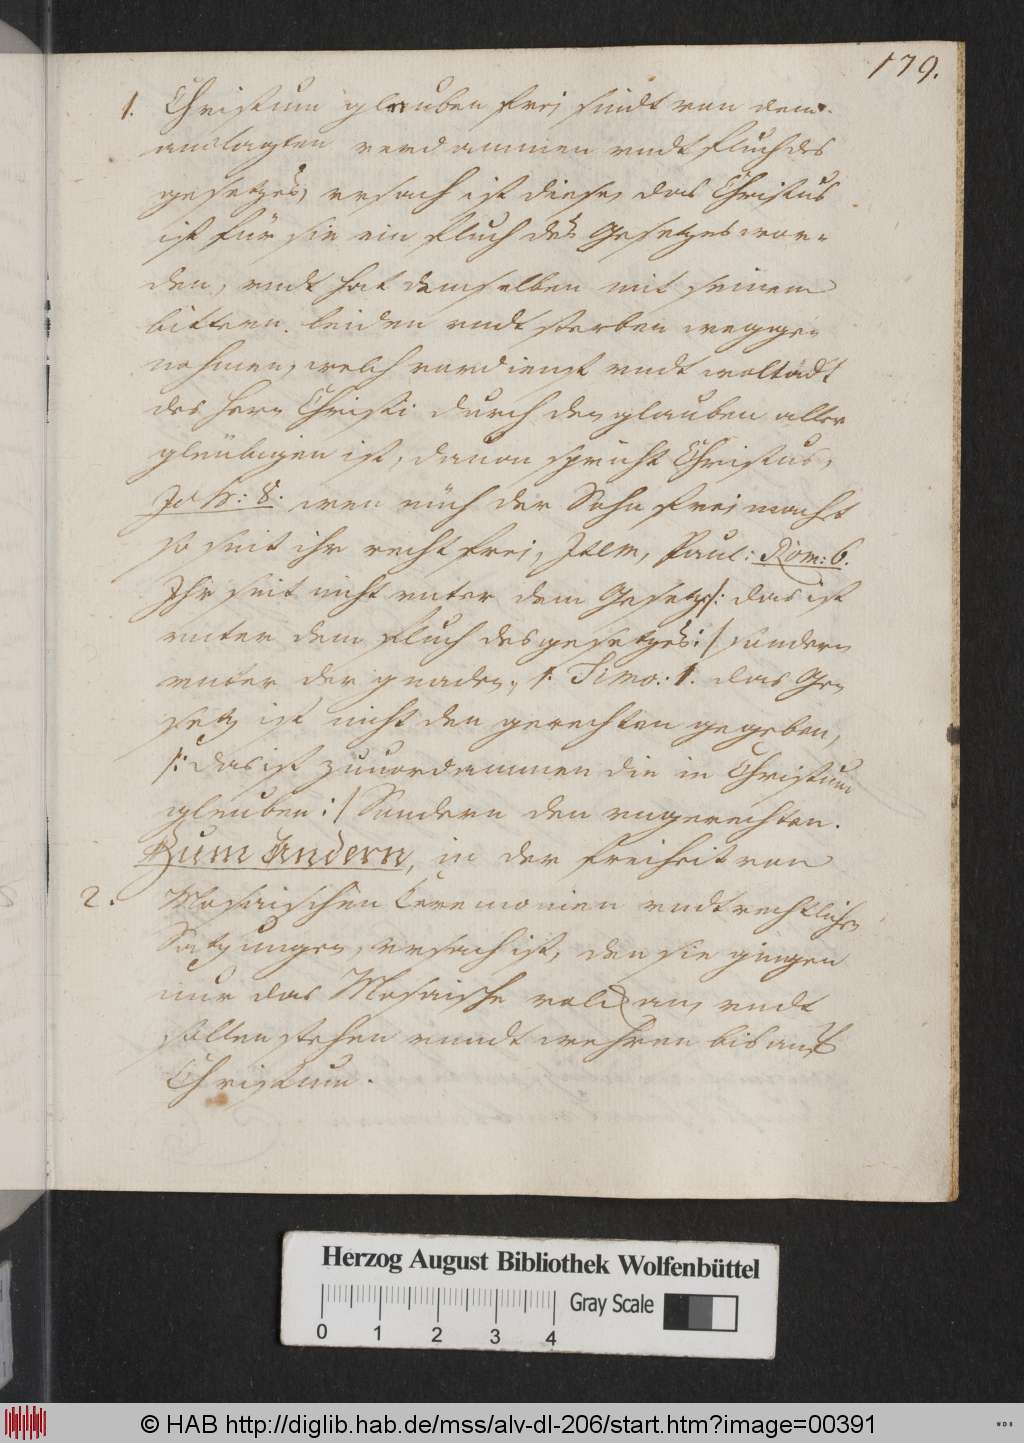 179.
1. Christum glauben frej sindt von dem
anclagten verdammen vndt fluch des
gesetzes, vrsach ist diese, das Christus
ist für sie ein fluch des Gesetzes wor-
den, vndt hat demselben mit seinem
bittern leiden vndt sterben wegge-
nohmen, welch verdienst vndt woltadt
des Hern Christi durch den glauben aller
gleubigen ist, dauon spricht Christus,
Joh: 8. wen euch der Sohn frei macht
so seit ihr recht frei, Item, Paul: Rom: 6.
Ihr seit nicht vnter dem Gesetz /: das ist
vnter dem fluch des gesetzes :/ sondern
vnter der gnaden, 1. Timo: 1. das Ge-
setz ist nicht den gerechten gegeben,
/: das ist zuuordammen die in Christum
gleuben :/ Sondern den vngerechten.
Zum Andern, in der freiheit von
2. Mosaischen Ceremonien vndt rechtlichen
Satzungen, vrsach ist, den sie gingen
nur das Mosaische volck an, vndt
sollen stehen vnndt wehren bis auff
Christum.
Herzog August Bibliothek Wolfenbüttel
Gray Scale
0 1 2 3 4
© HAB http://diglib.hab.de/mss/alv-dl-206/start.htm?image=00391